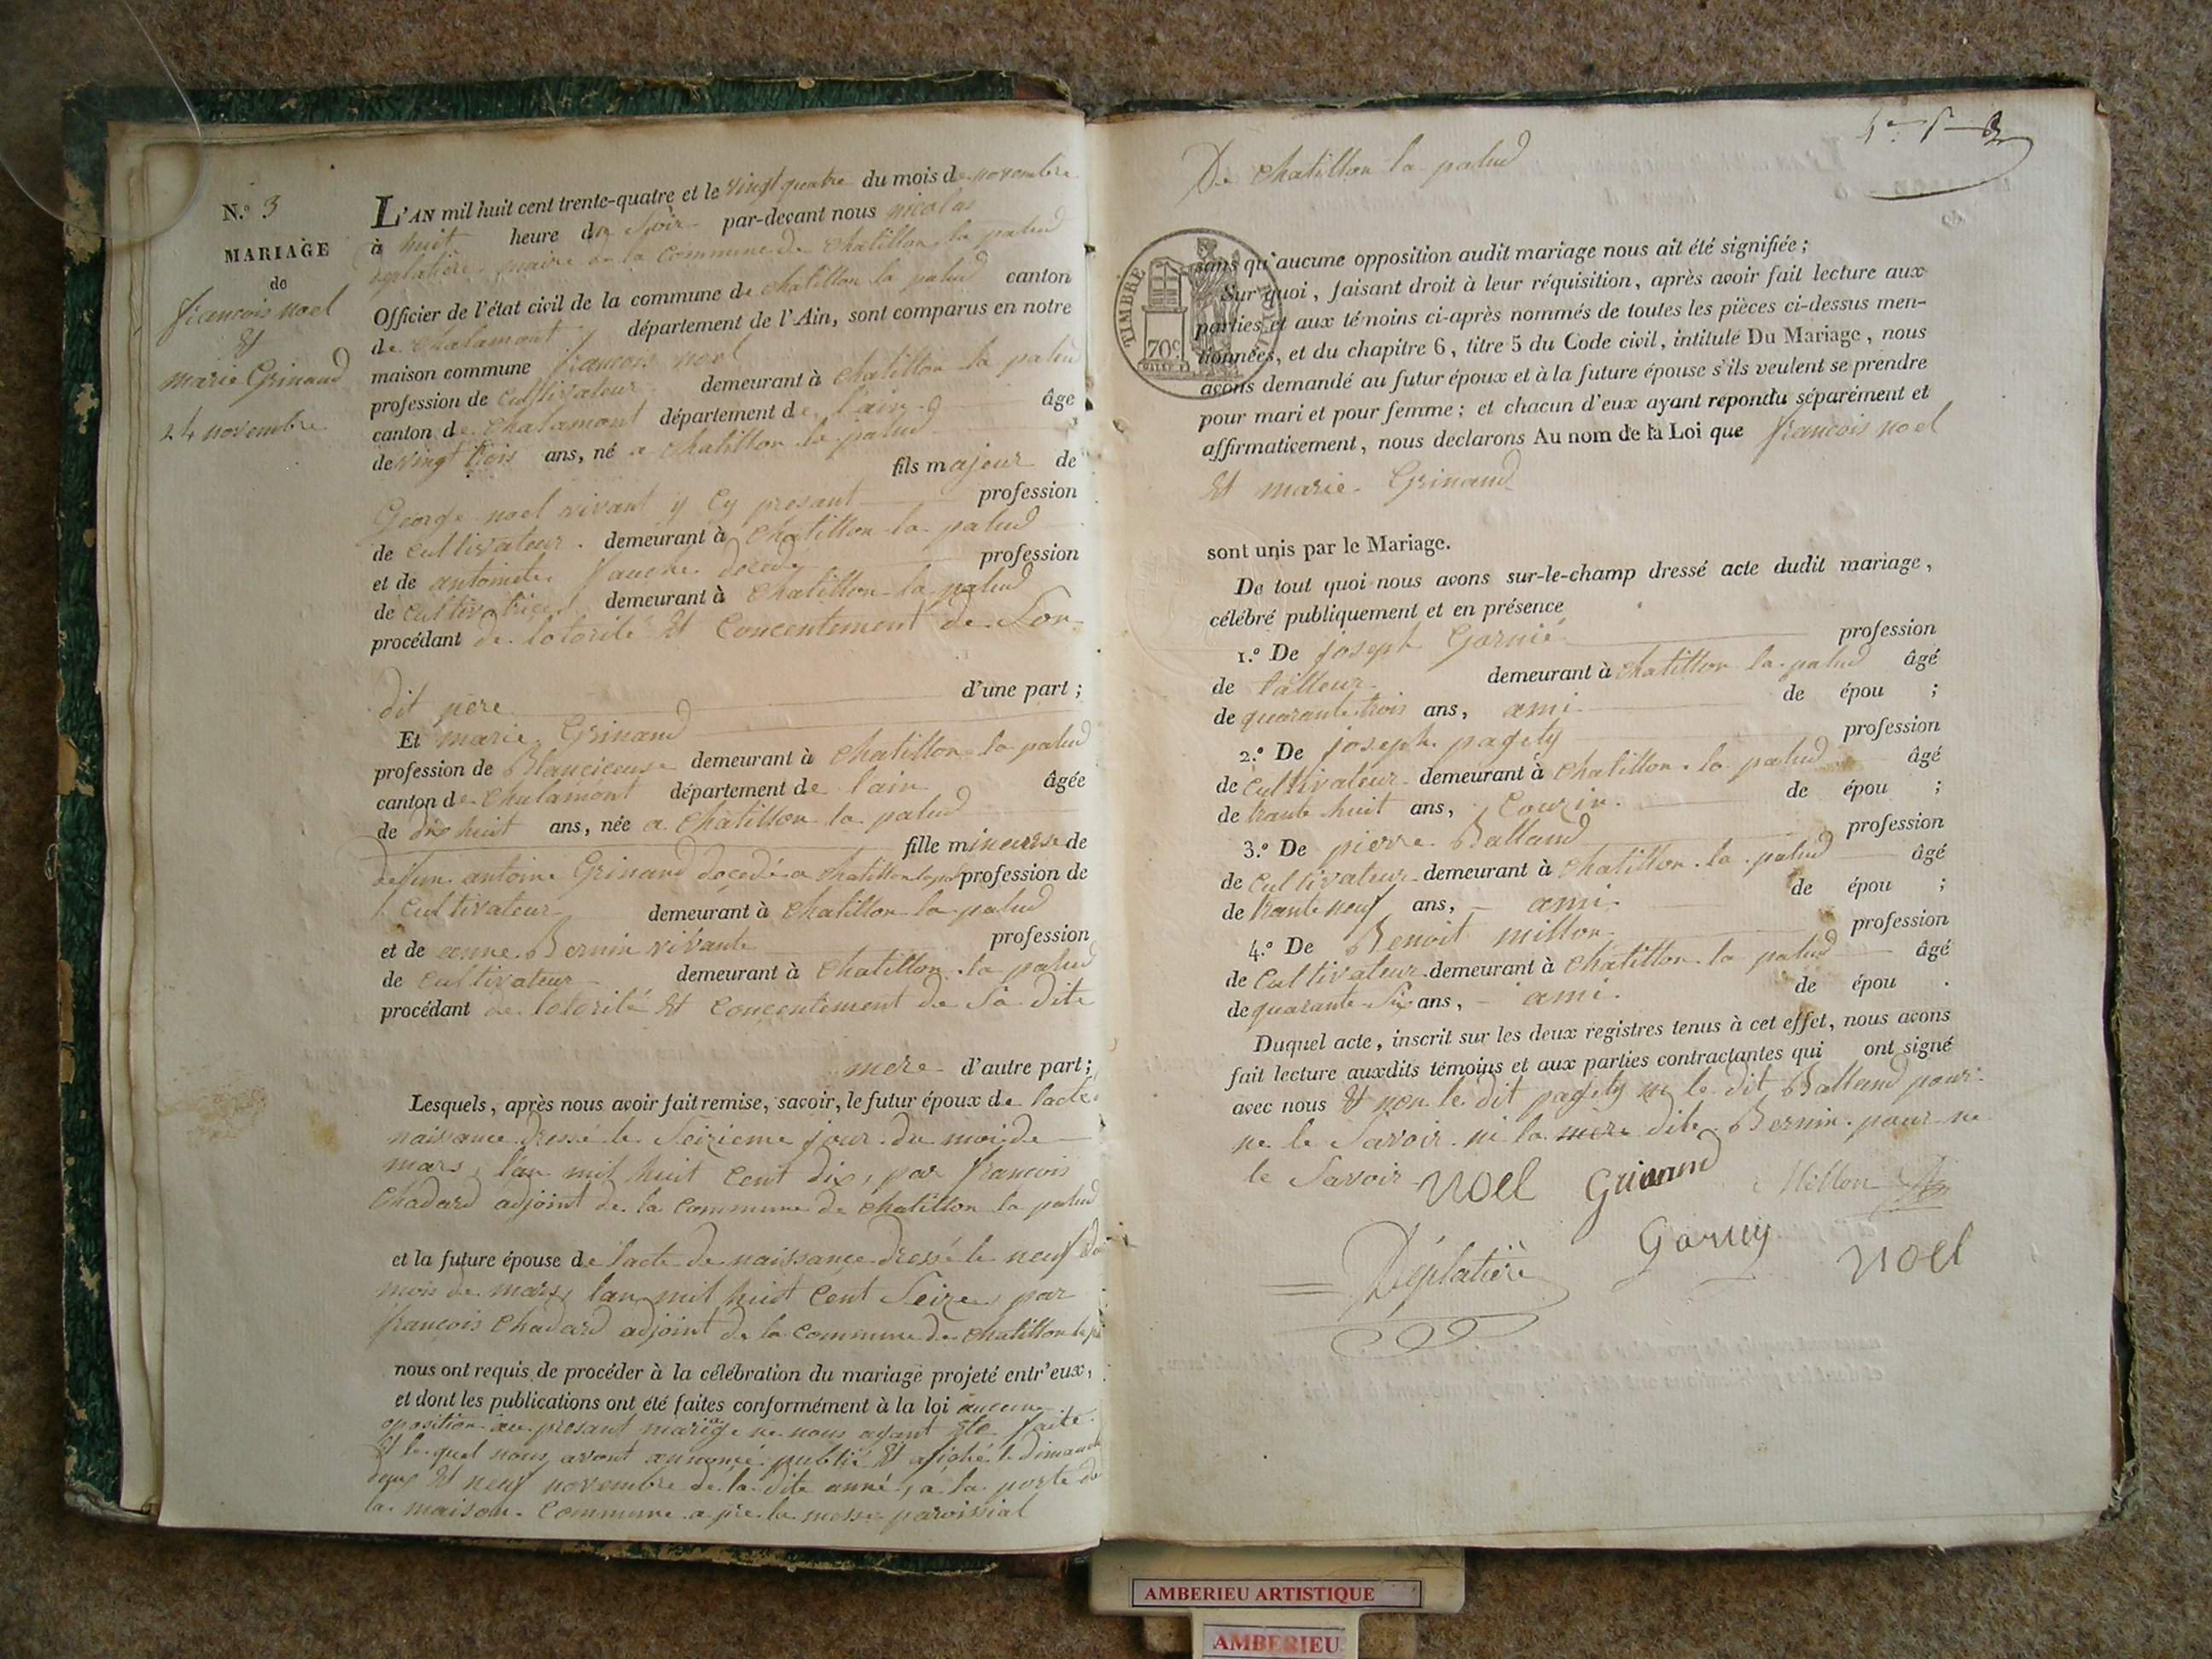 N.º 3
MARIAGE
de
francois noel
&
marie Grinand
24 novembre
L'AN mil huit cent trente-quatre et le vingt quatre du mois de novembre
à huit heure du Soir par-devant nous nicolas
deplatière maire de la Commune de chatillon la palud
Officier de l'état civil de la commune de chatillon la palud canton
de chalamont département de l'Ain, sont comparus en notre
maison commune francois noel
profession de Cultivateur demeurant à chatillon la palud
canton de chalamont département de l'ain âge
de vingt trois ans, né a chatillon la palud
fils majeur de
George noel vivant y Cy presant profession
de Cultivateur demeurant à chatillon la palud
et de antoinete fauche décédé profession
de Cultivatrice demeurant à chatillon la palud
procédant de lotorité Et Concentement de Son
dit pere d'une part ;
Et marie Grinand
profession de Blancieuse demeurant à chatillon la palud
canton de chalamont département de l'ain âgée
de dix huit ans, née a chatillon la palud
fille mineurse de
defun antoine Grinand décédé a chatillon lapal profession de
Cultivateur demeurant à chatillon la palud
et de anne Bernin vivante profession
de Cultivateur demeurant à chatillon la palud
procédant de lotorité Et Concentement de Sa dite
mere d'autre part ;
Lesquels, après nous avoir fait remise, savoir, le futur époux de lacte
naissance dressé le Seizieme jour du moi de
mars, l'an mil huit Cent dix, par francois
Chadard adjoint de la Commune de chatillon la palud
et la future épouse de lacte de naissance dressé le neuf du
mois de mars, lan mil huit Cent Seize, par
francois Chadard adjoint de la Commune de chatillon la pal
nous ont requis de procéder à la célébration du mariage projeté entr'eux,
et dont les publications ont été faites conformément à la loi aucune
oposition au presant mariage ne nous ayant été faite
Et le quel nous avont annoncé publié Et afiché le dimanche
deux Et neuf novembre de la dite anné, a la porte de
la maison Commune a pre la messe paroissial
De chatillon la palud
TIMBRE
70c
sans qu'aucune opposition audit mariage nous ait été signifiée ;
Sur quoi, faisant droit à leur réquisition, après avoir fait lecture aux
parties et aux témoins ci-après nommés de toutes les pièces ci-dessus men-
tionnées, et du chapitre 6, titre 5 du Code civil, intitulé Du Mariage, nous
avons demandé au futur époux et à la future épouse s'ils veulent se prendre
pour mari et pour femme ; et chacun d'eux ayant repondu séparément et
affirmativement, nous declarons Au nom de la Loi que francois noel
Et marie Grinand
sont unis par le Mariage.
De tout quoi nous avons sur-le-champ dressé acte dudit mariage,
célébré publiquement et en présence
1.º De joseph Garnié profession
de tailleur demeurant à chatillon la palud âgé
de quarante trois ans, ami de épou ;
2.º De joseph pagety profession
de Cultivateur demeurant à chatillon la palud âgé
de trante huit ans, Couzin de épou ;
3.º De pierre Balland profession
de Cultivateur demeurant à chatillon la palud âgé
de trante neuf ans, ami de épou ;
4.º De Benoit millon profession
de Cultivateur demeurant à chatillon la palud âgé
de quarante Six ans, ami de épou .
Duquel acte, inscrit sur les deux registres tenus à cet effet, nous avons
fait lecture auxdits témoins et aux parties contractantes qui ont signé
avec nous Et non le dit pagety ni le dit Balland pour
ne le Savoir ni la mere dite Bernin pour ne
le Savoir
Noel Grinand Millon
Déplatière Garney Noel
AMBERIEU ARTISTIQUE
AMBERIEU